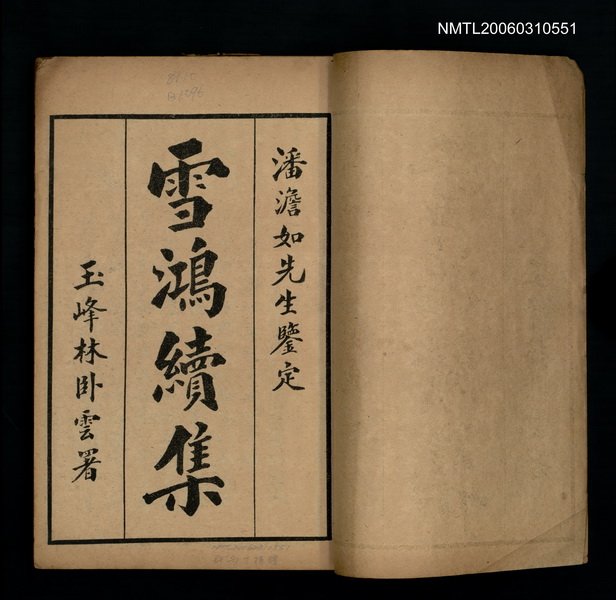 NMTL20060310551
潘澹如先生鑒定
雪鴻續集
玉峰林卧雲署